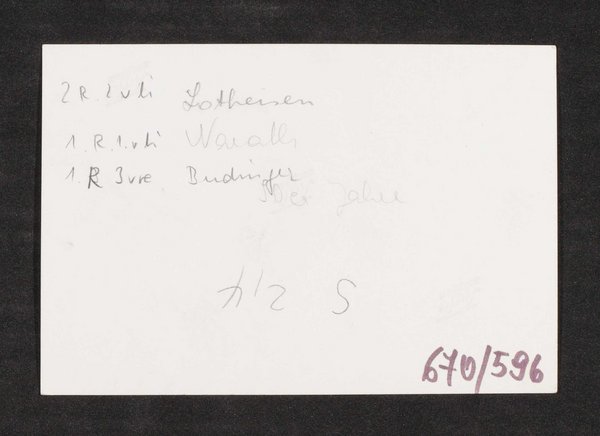 2 R. 2 v li Lotheisen
1. R. 1. v li
1. R 3 v re Budinger
30er Jahre
670/596